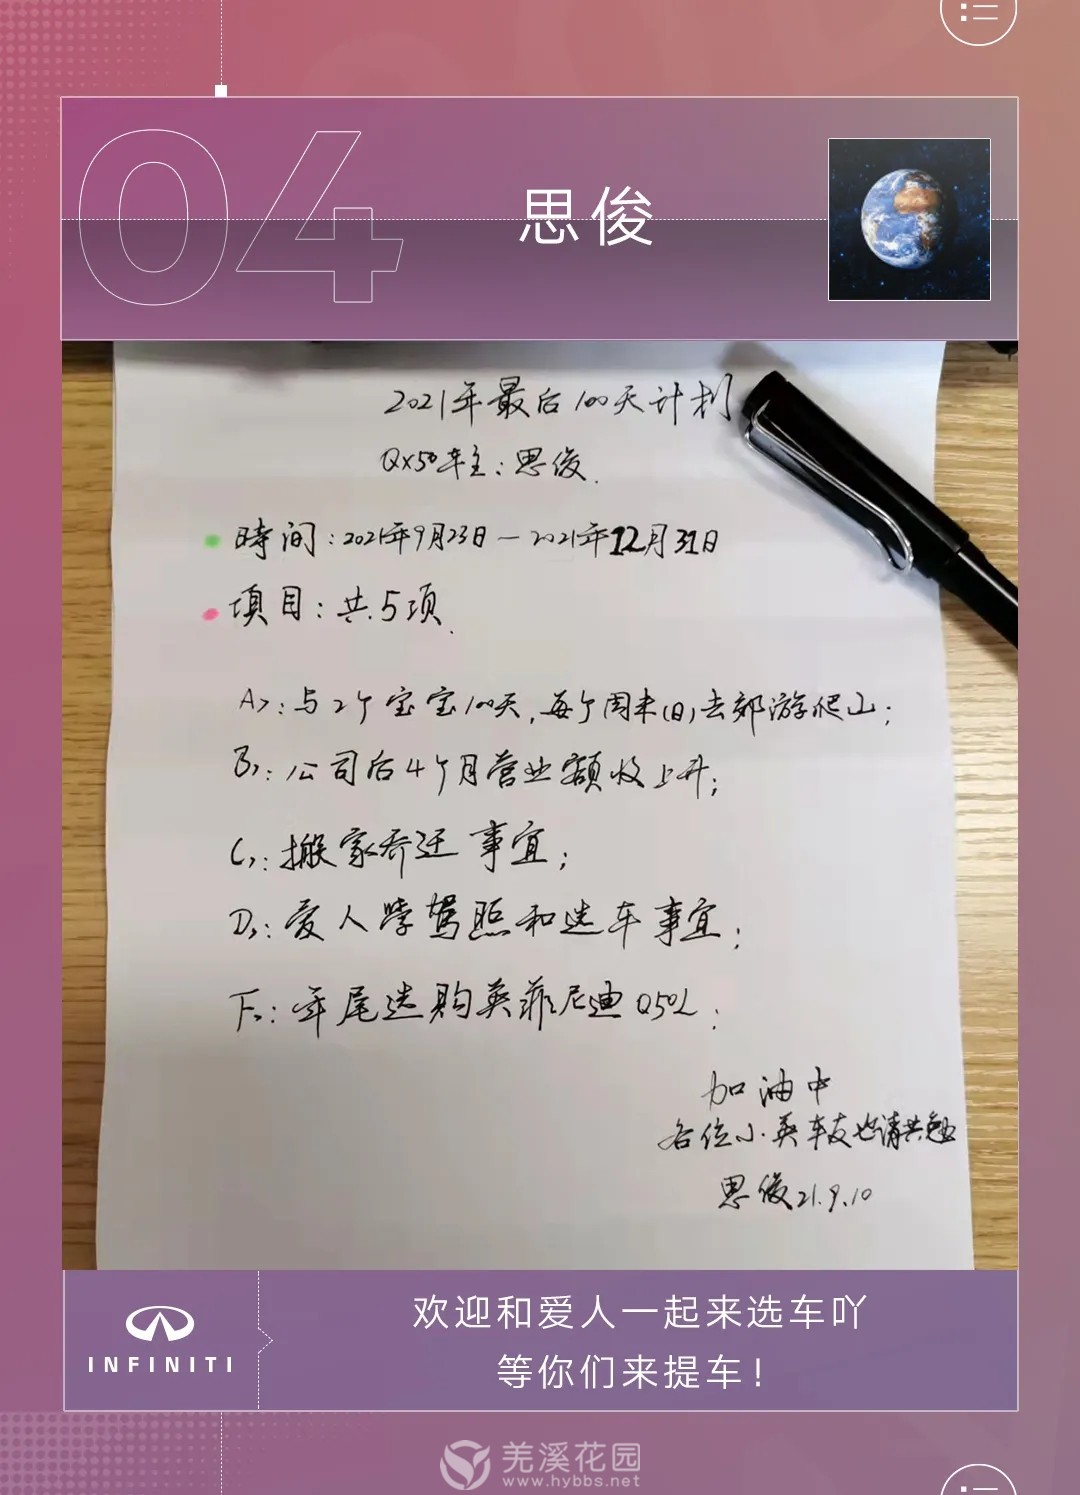 04
思俊
2021年最后100天计划
QX50车主：思俊.
時间：2021年9月23日－2021年12月31日
填目：共5项.
A>：与2个宝宝100天，每个周末(日)去郊游爬山；
B>：公司后4个月营业额收上升；
C>：搬家乔迁事宜；
D>：爱人学驾照和选车事宜；
F>：年尾选购英菲尼迪Q50L；
加油中
各位小英车友也请共勉
思俊21.9.10
INFINITI
欢迎和爱人一起来选车吖
等你们来提车！
羌溪花园
www.hybbs.net